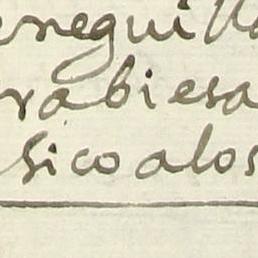 eneguilla
rabiesa
sico alos